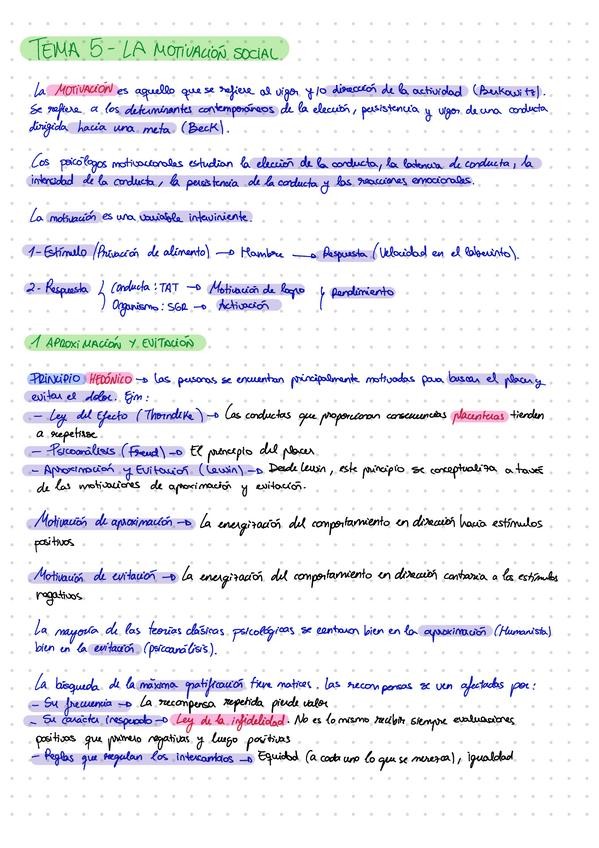 TEMA 5 - LA MOTIVACIÓN SOCIAL
La MOTIVACIÓN es aquello que se refiere al vigor y/o dirección de la actividad (Berkowitz).
Se refiere a los determinantes contemporáneos de la elección, persistencia y vigor de una conducta
dirigida hacia una meta (Beck).
Los psicólogos motivacionales estudian la elección de la conducta, la latencia de conducta, la
intensidad de la conducta, la persistencia de la conducta y las reacciones emocionales.
La motivación es una variable interviniente.
1- Estímulo (Privación de alimento) → Hambre → Respuesta (Velocidad en el laberinto).
2- Respuesta { Conducta: TAT → Motivación de logro } Rendimiento
Organismo: SGR → Activación
1 APROXIMACIÓN Y EVITACIÓN
PRINCIPIO HEDÓNICO → Las personas se encuentran principalmente motivadas para buscar el placer y
evitar el dolor. Ejm:
- Ley del Efecto (Thorndike) → Las conductas que proporcionan consecuencias placenteras tienden
a repetirse
- Psicoanálisis (Freud) → El principio del placer
- Aproximación y Evitación (Lewin) → Desde Lewin, este principio se conceptualiza a través
de las motivaciones de aproximación y evitación.
Motivación de aproximación → La energización del comportamiento en dirección hacia estímulos
positivos
Motivación de evitación → La energización del comportamiento en dirección contraria a los estímulos
negativos
La mayoría de las teorías clásicas psicológicas se centraron bien en la aproximación (Humanista)
bien en la evitación (psicoanálisis).
La búsqueda de la máxima gratificación tiene matices. Las recompensas se ven afectadas por:
- Su frecuencia → La recompensa repetida pierde valor
- Su carácter inesperado → Ley de la infidelidad. No es lo mismo recibir siempre evaluaciones
positivas que primero negativas y luego positivas
- Reglas que regulan los intercambios → Equidad (a cada uno lo que se merezca), igualdad